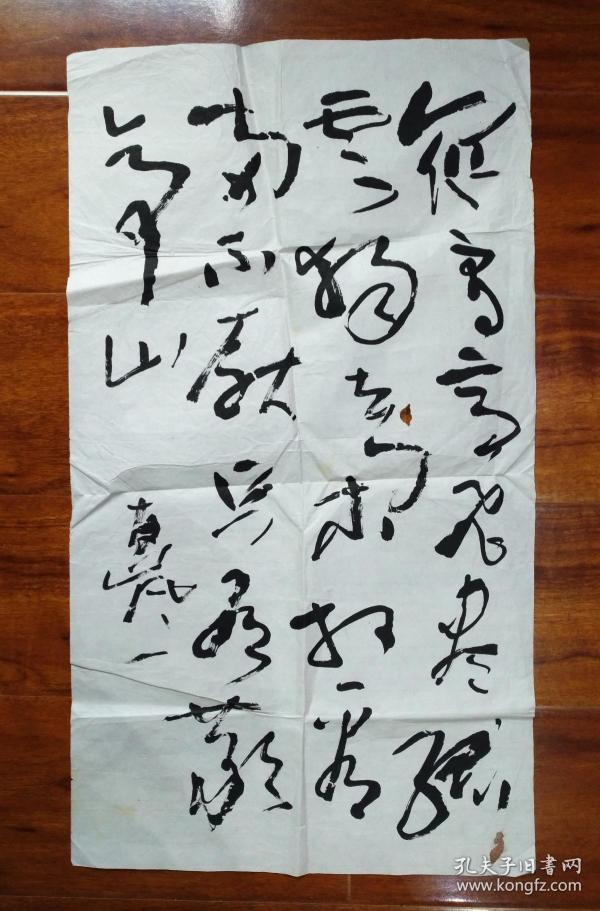 众鸟高飞尽孤
云独去闲相看
两不厌只有敬
亭山
孔夫子旧书网
www.kongfz.com